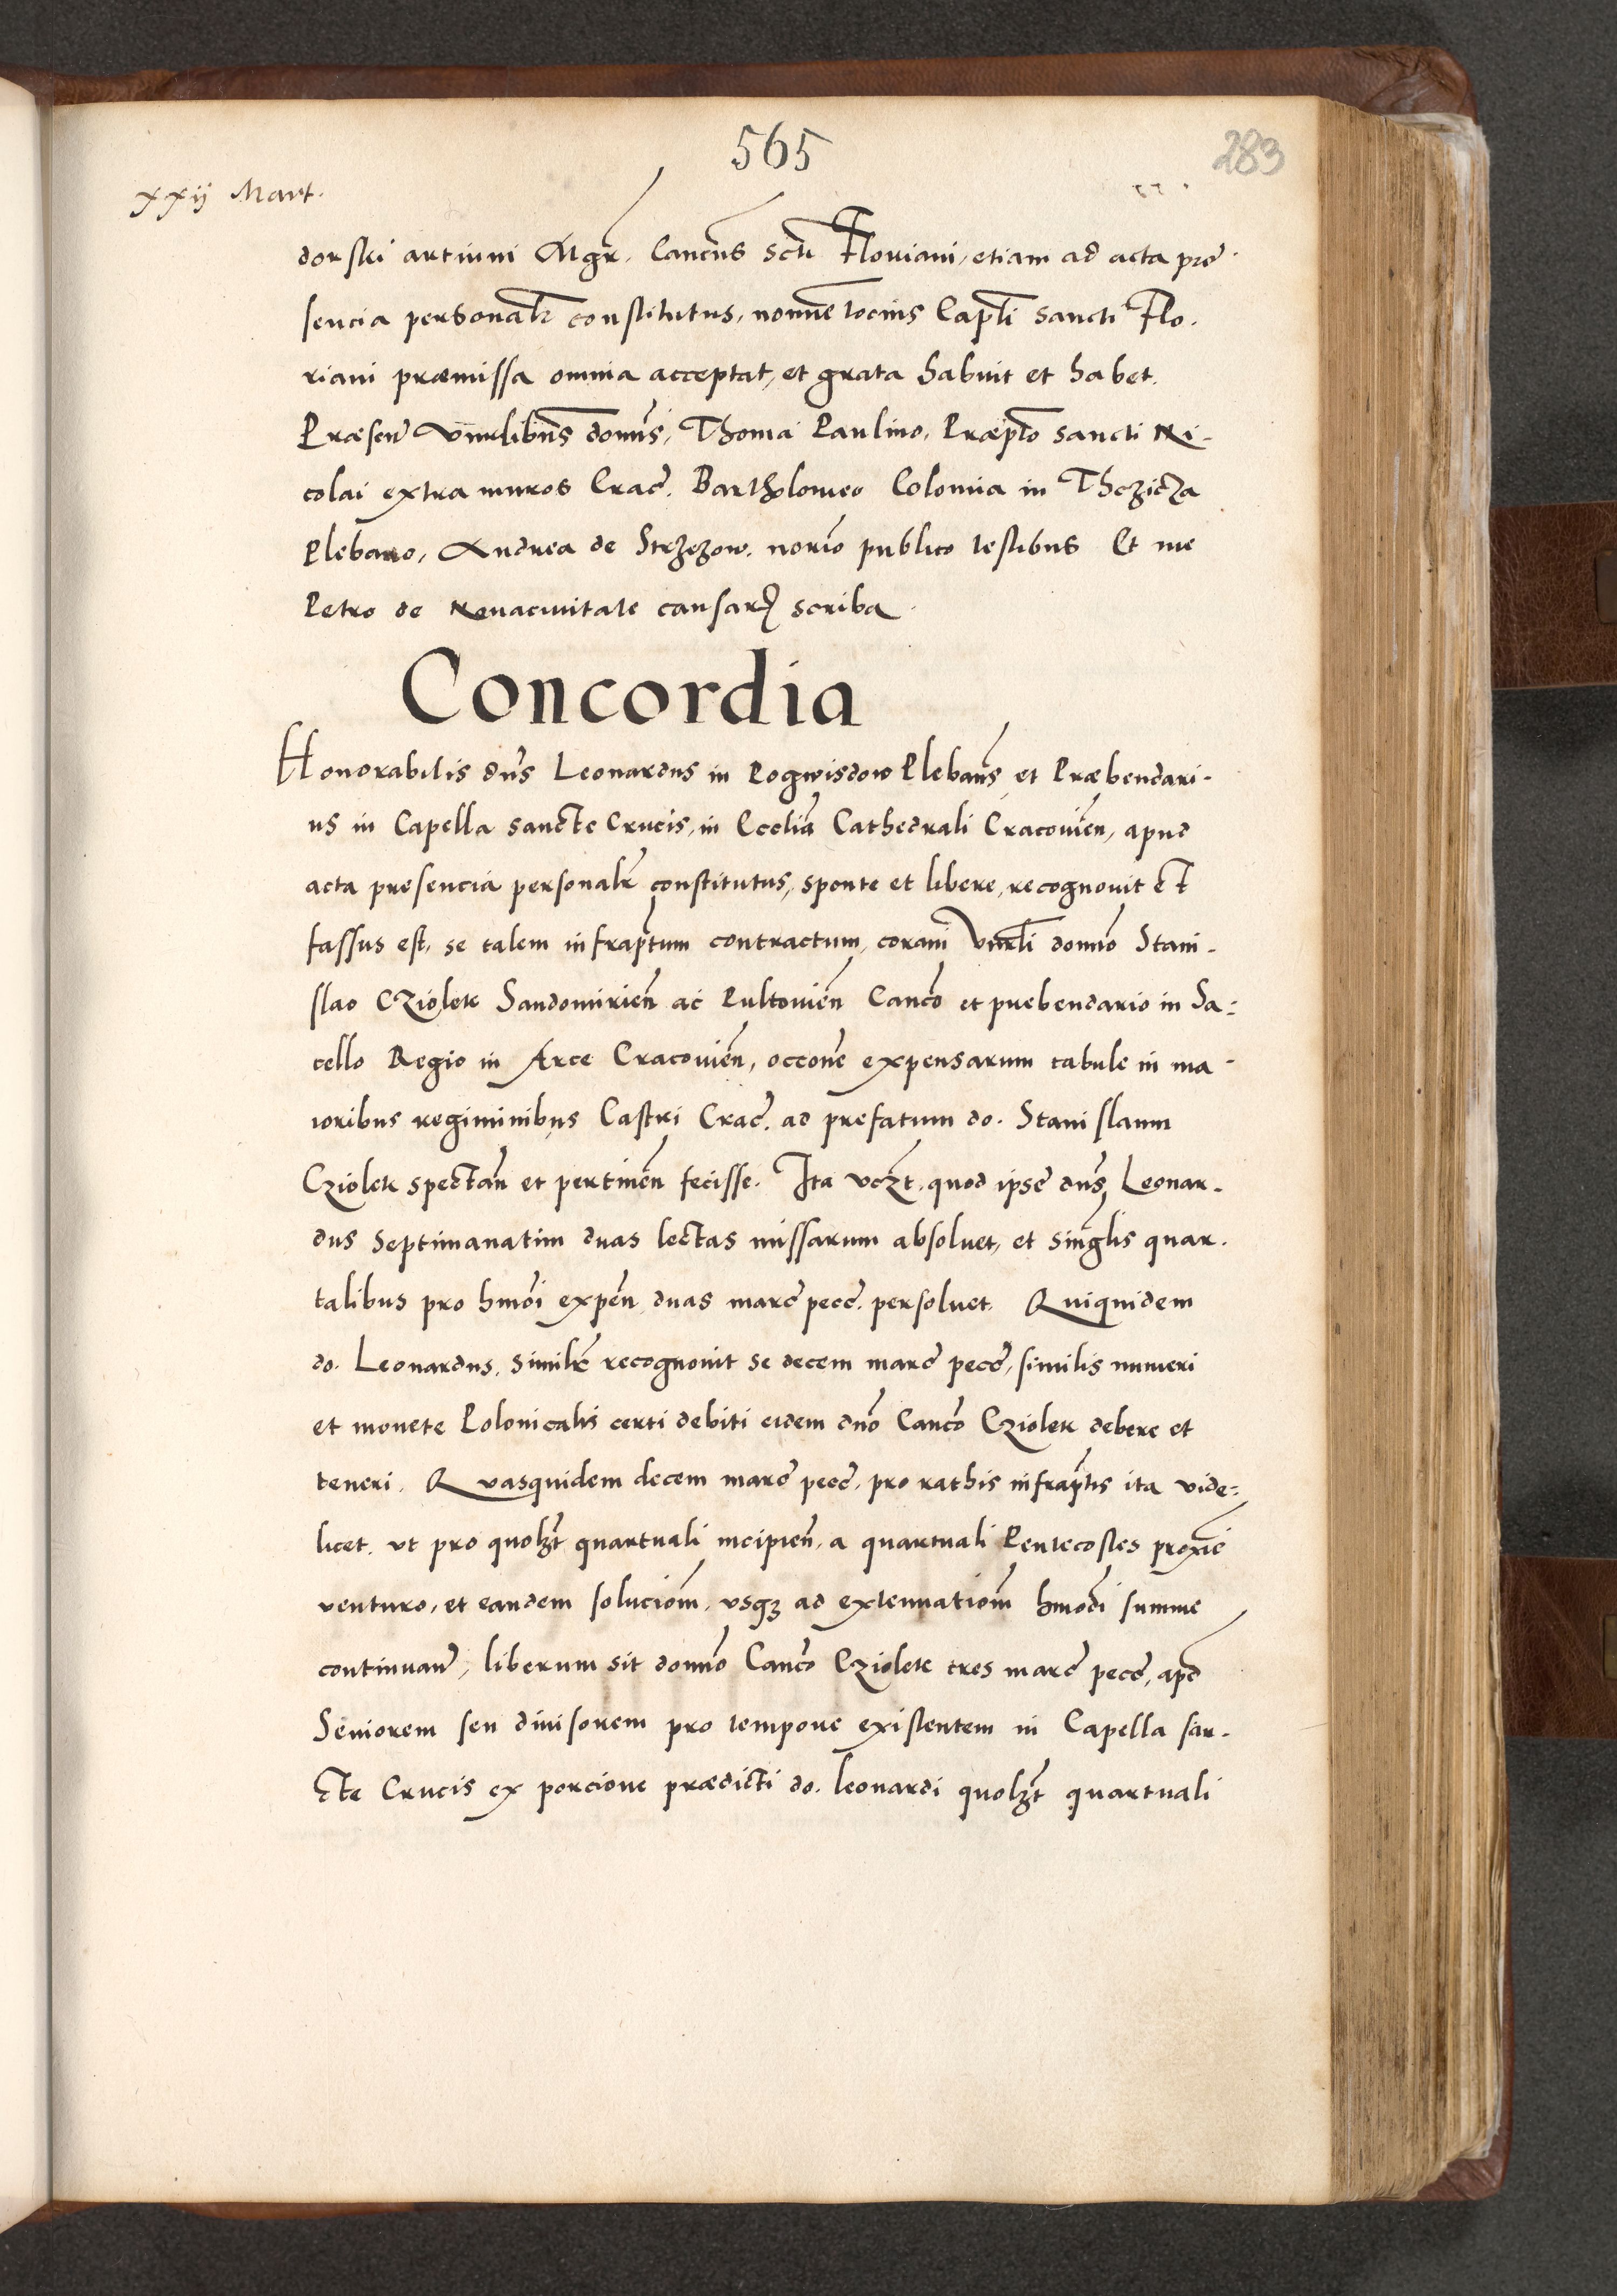 565
283
xxij Mart.
dorski artium Mgr. Cancus scti Floriani, etiam ad acta pre
sencia personalr constitutus, nomine tocius Capli sancti Flo.
riani præmissa omnia acceptat, et grata habuit et habet.
Præsen Vnrlibus domis, Thoma Paulino, Præpto sancti Ni-
colai extra muros Crac. Bartholomeo Colomia in
Plebano, Andrea de Strzezow. norio publico testibus Et me
Petro de Nouaciuitate causarꝝ scriba.
Concordia
Honorabilis dns Leonardus in Pogwisdow Plebans et Præbendari-
us in Capella sancte Crucis, in Ecclia Cathedrali Cracouien, apud
acta presencia personalr constitutus, sponte et libere, recognouit et
fassus est, se talem infraptum contractum, coram Vnrli domno Stani-
slao Cziolek Sandomirien ac Pultouien Canco et prebendario in Sa=
cello Regio in Arce Cracouien, occone expensarum tabule in ma-
ioribus regiminibus Castri Crac. ad prefatum do. Stanislaum
Cziolek spectan et pertinen fecisse. Ita vczt. quod ipse dns Leonar-
dus septimanatim duas lectas missarum absoluet, et singlis quar-
talibus pro hmoi expen duas marc pecc. persoluet. Quiquidem
do. Leonardus, similr recognouit se decem marc pecc, similis numeri
et monete Polonicalis certi debiti eidem dno Canco Cziolek debere et
teneri. Quasquidem decem marc pecc. pro rathis infraptis ita vide=
licet. vt pro quolzt quartuali incipien, a quartuali Pentecostes proxie
venturo, et eandem soluciom, vsqꝫ ad extenuatiom hmodi summe
continuan, liberum sit domno Canco Cziolek tres marc pecc, apd
Seniorem seu diuisorem pro tempore existentem in Capella san-
cte Crucis ex porcione prædicti do. leonardi quolzt quartuali